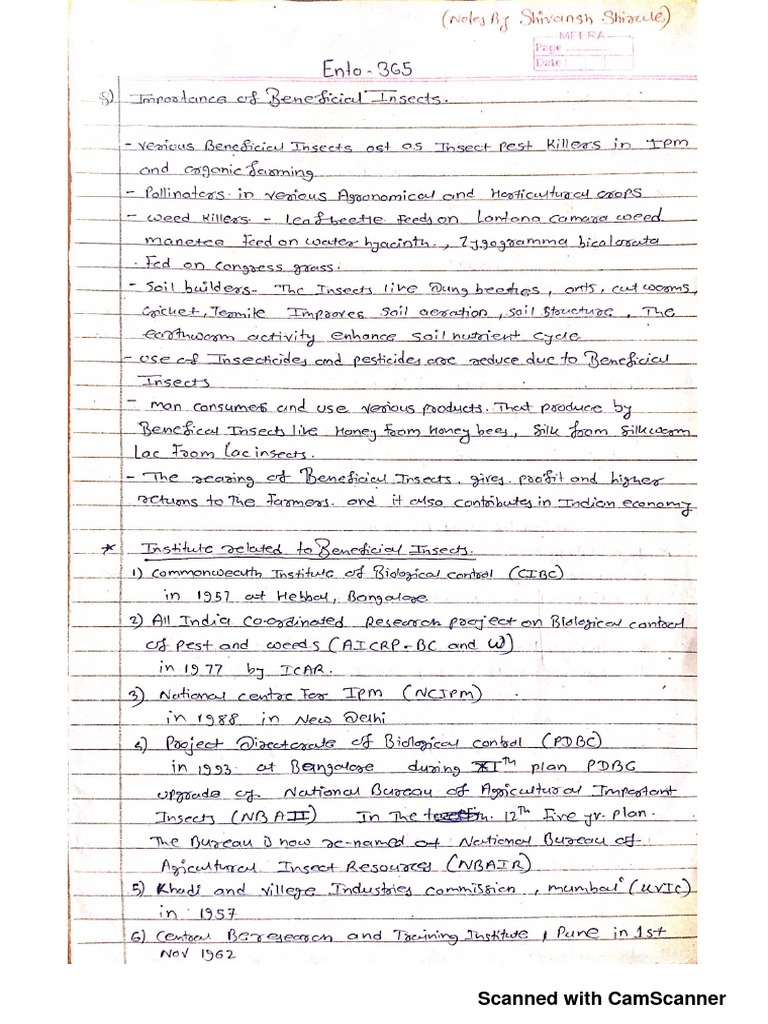 (Notes By Shivansh Shirale)
MEERA
Page
Date
Ento-365
§) Importance of Beneficial Insects.
- Verious Beneficial Insects ast as Insect pest Killers in IPM
and organic farming
- Pollinators in verious Agronomical and Horticultural crops
- Weed Killers - Leafbeetle feeds on Lantana camara weed
manetea Feed on water hyacinth., Zygogramma bicolarata
. Fed on congress grass.
- Soil builders- The Insects like Dung beatles, ants, cut worms,
Cricket, Termile Improves soil aeration, soil structure, The
earthworm activity enhance soil nutrient cycle
- use of Insecticides and pesticides are reduce due to Beneficial
Insects
- man consumes and use verious products. That produce by
Benefical Insects like Honey from Honey bees, Silk from Silkworm
Lac From Lac insects.
- The rearing of Beneficial Insects. gives profit and higher
returns to the Farmers. and it also contributes in Indian economy
* Institute related to Beneficial Insects.
1) Commonwealth Institute of Biological control (CIBC)
in 1957 at Hebbal, Bangalore
2) All India co-ordinated Research project on Biological control
of pest and weeds (AICRP-BC and W)
in 1977 by ICAR.
3) National centre For IPM (NCIPM)
in 1988 in New Delhi
4) Project Directorate of Biological control (PDBC)
in 1993 at Bangalore during XIth plan PDBC
upgrade as National Bureau of Agricultural Important
Insects (NBAII) In The 12th Five yr. plan.
The Bureau is now re-named at National Bureau of
Agricultural Insect Resources (NBAIR)
5) Khadi and villege Industries commission, mumbai (KVIC)
in 1957
6) Central Bee research and Training Institute, Pune in 1st
Nov 1962
Scanned with CamScanner